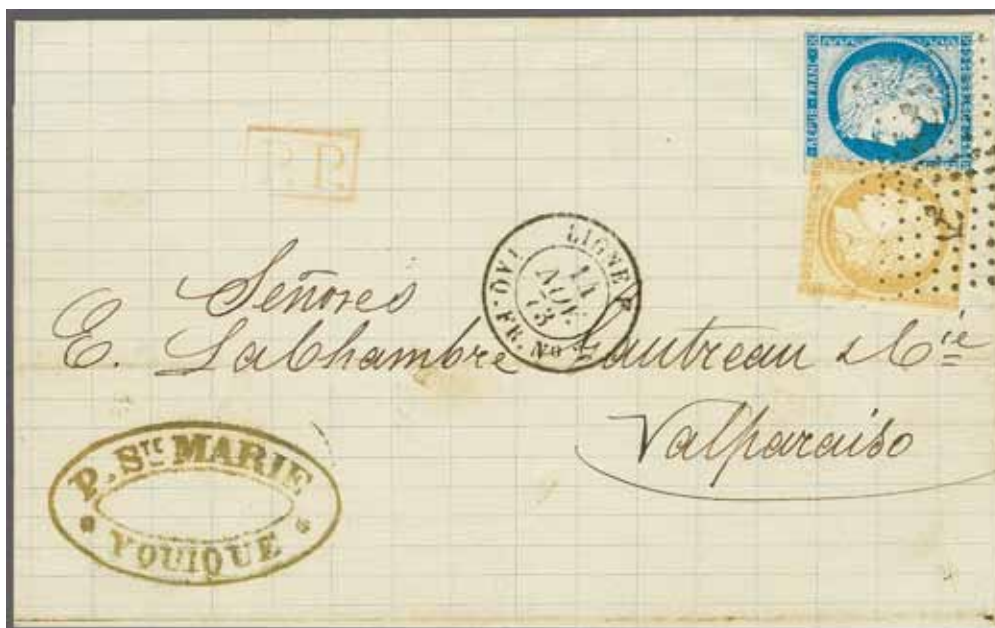 P.P.
LIGNE F
PAQ. FR. No
Señores
E. LaChambre Gautreau & Cie
Valparaiso
P. STE MARIE
YQUIQUE